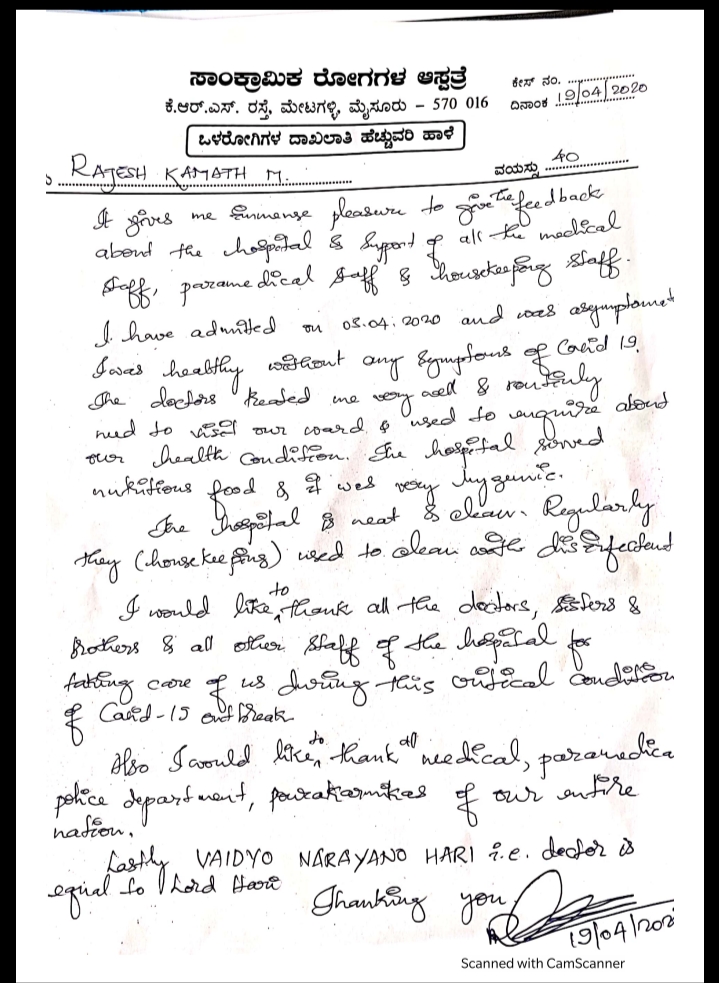 ಸಾಂಕ್ರಾಮಿಕ ರೋಗಗಳ ಆಸ್ಪತ್ರೆ
ಕೇಸ್ ನಂ. ....................
ಕೆ.ಆರ್.ಎಸ್. ರಸ್ತೆ, ಮೇಟಗಳ್ಳಿ, ಮೈಸೂರು – 570 016
ದಿನಾಂಕ 19/04/2020
ಒಳರೋಗಿಗಳ ದಾಖಲಾತಿ ಹೆಚ್ಚುವರಿ ಹಾಳೆ
RAJESH KAMATH M.
ವಯಸ್ಸು 40
It gives me immense pleasure to give the feedback
about the hospital & support of all the medical
staff, paramedical staff & housekeeping staff.
I have admitted on 03.04.2020 and was asymptomat
I was healthy without any symptoms of Covid 19.
The doctors treated me very well & routinly
used to visit our ward & used to enquire about
our health condition. The hospital served
nutritious food & it was very hygenic.
The hospital is neat & clean. Regularly
they (housekeeping) used to clean with disinfectant
I would like to thank all the doctors, sisters &
Brothers & all other staff of the hospital for
taking care of us during this critical condition
of Covid-19 outbreak
Also I would like to thank all medical, paramedica
police department, pourakarmikas of our entire
nation.
Lastly VAIDYO NARAYANO HARI i.e. doctor is
equal to Lord Hari
Thanking you
19/04/202
Scanned with CamScanner